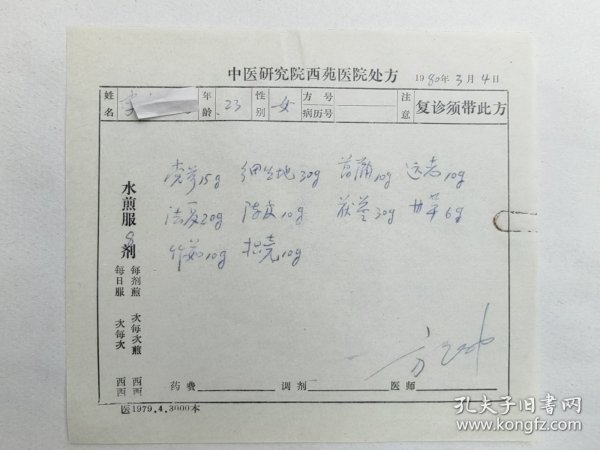 中医研究院西苑医院处方 1980年3月4日
姓名 年龄 23 性别 女 方号 病历号 注意 复诊须带此方
党参15g 细生地30g 菖蒲10g 远志10g
法夏20g 陈皮10g 茯苓30g 甘草6g
竹茹10g 枳壳10g
水煎服8剂
每日服 次每次 西西
每剂煎 次每次煎 西西
药费 调剂 医师
医1979.4.3000本
孔夫子旧书网
www.kongfz.com